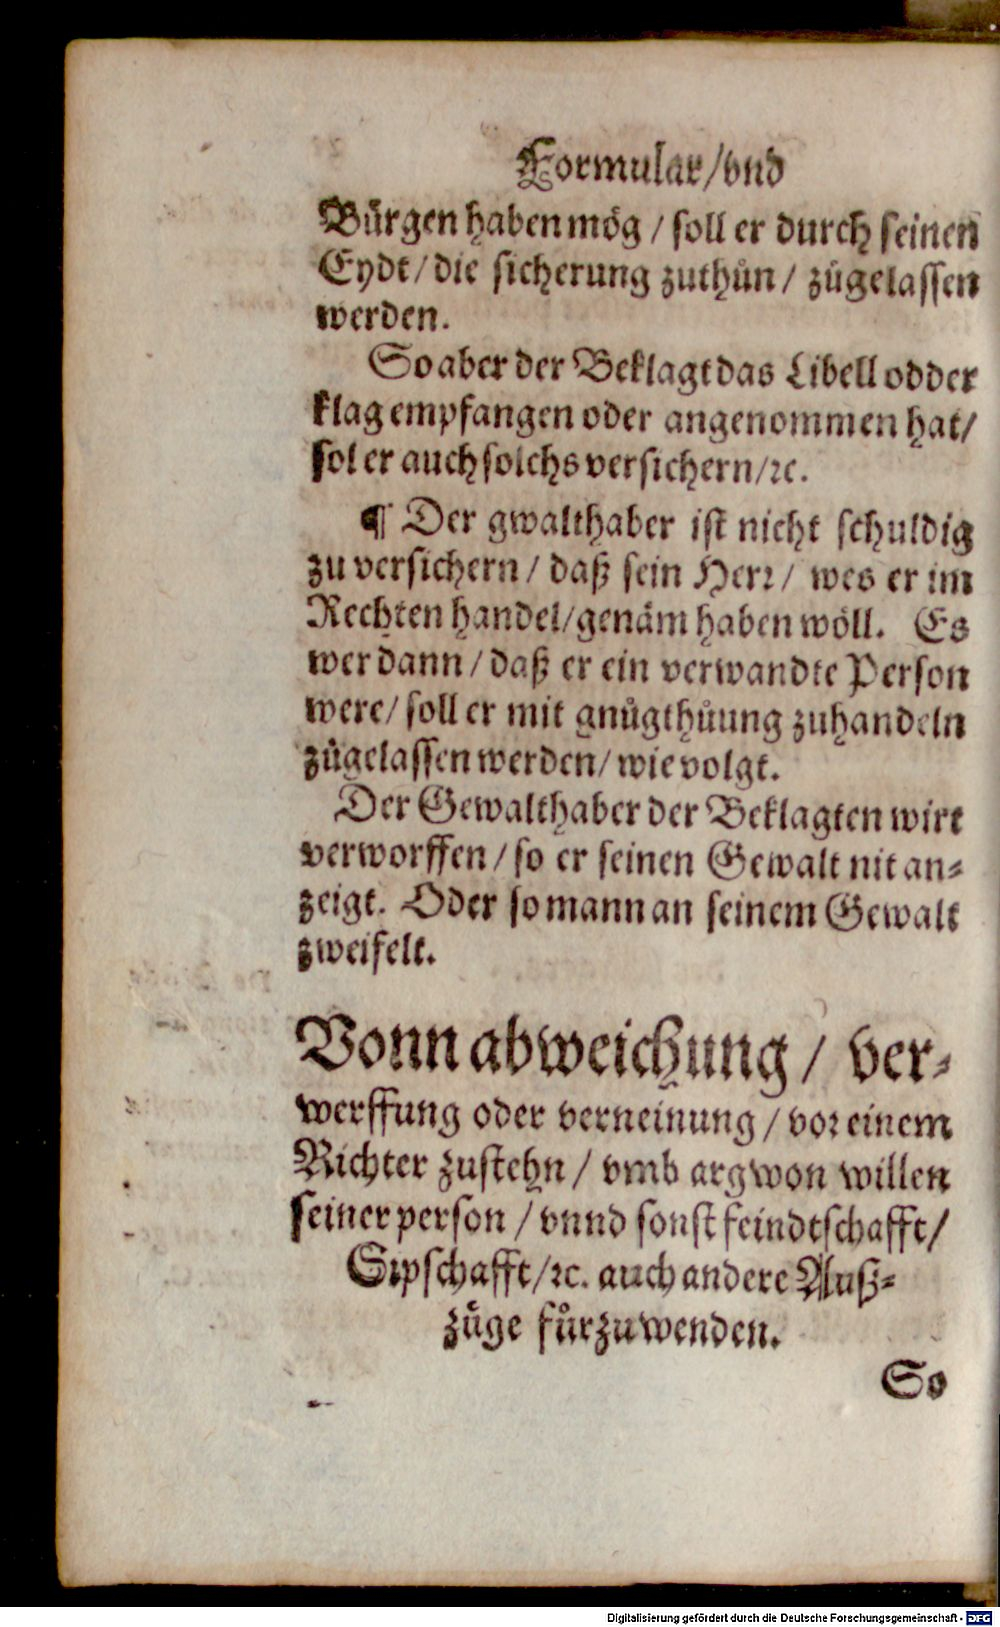 Formular/vnd
Bürgen haben mög / soll er durch seinen
Eydt/die sicherung zuthůn/ zůgelassen
werden.
So aber der Beklagt das Libell odder
klag empfangen oder angenommen hat/
sol er auch solchs versichern/ꝛc.
¶ Der gwalthaber ist nicht schuldig
zu versichern / daß sein Herꝛ / wes er im
Rechten handel/genäm haben wöll. Es
wer dann / daß er ein verwandte Person
were/ soll er mit gnůgthůung zuhandeln
zůgelassen werden/ wie volgt.
Der Gewalthaber der Beklagten wirt
verworffen / so er seinen Gewalt nit an⸗
zeigt. Oder so mann an seinem Gewalt
zweifelt.
Vonn abweichung / ver⸗
werffung oder verneinung / voꝛ einem
Richter zustehn / vmb argwon willen
seiner person / vnnd sonst feindtschafft/
Sipschafft/ꝛc. auch andere Auß⸗
züge fůrzuwenden.
So
Digitalisierung gefördert durch die Deutsche Forschungsgemeinschaft - DFG